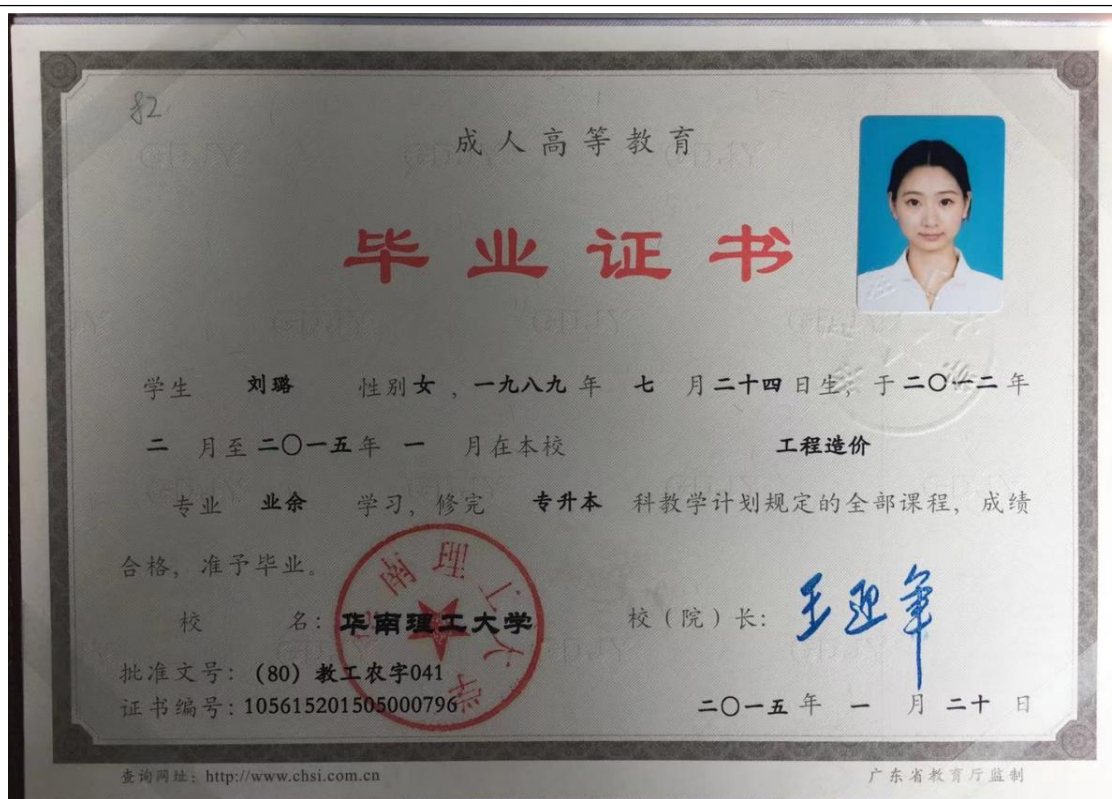 82
成人高等教育
毕业证书
学生 刘璐 性别 女 ，一九八九 年 七 月 二十四 日生，于 二〇一二 年
二 月至 二〇一五 年 一 月在本校 工程造价
专业 业余 学习，修完 专升本 科教学计划规定的全部课程，成绩
合格，准予毕业。
校 名：华南理工大学 校（院）长：王迎军
华南理工大学
批准文号：(80) 教工农字041
证书编号：105615201505000796 二〇一五 年 一 月 二十 日
查询网址：http://www.chsi.com.cn 广东省教育厅监制